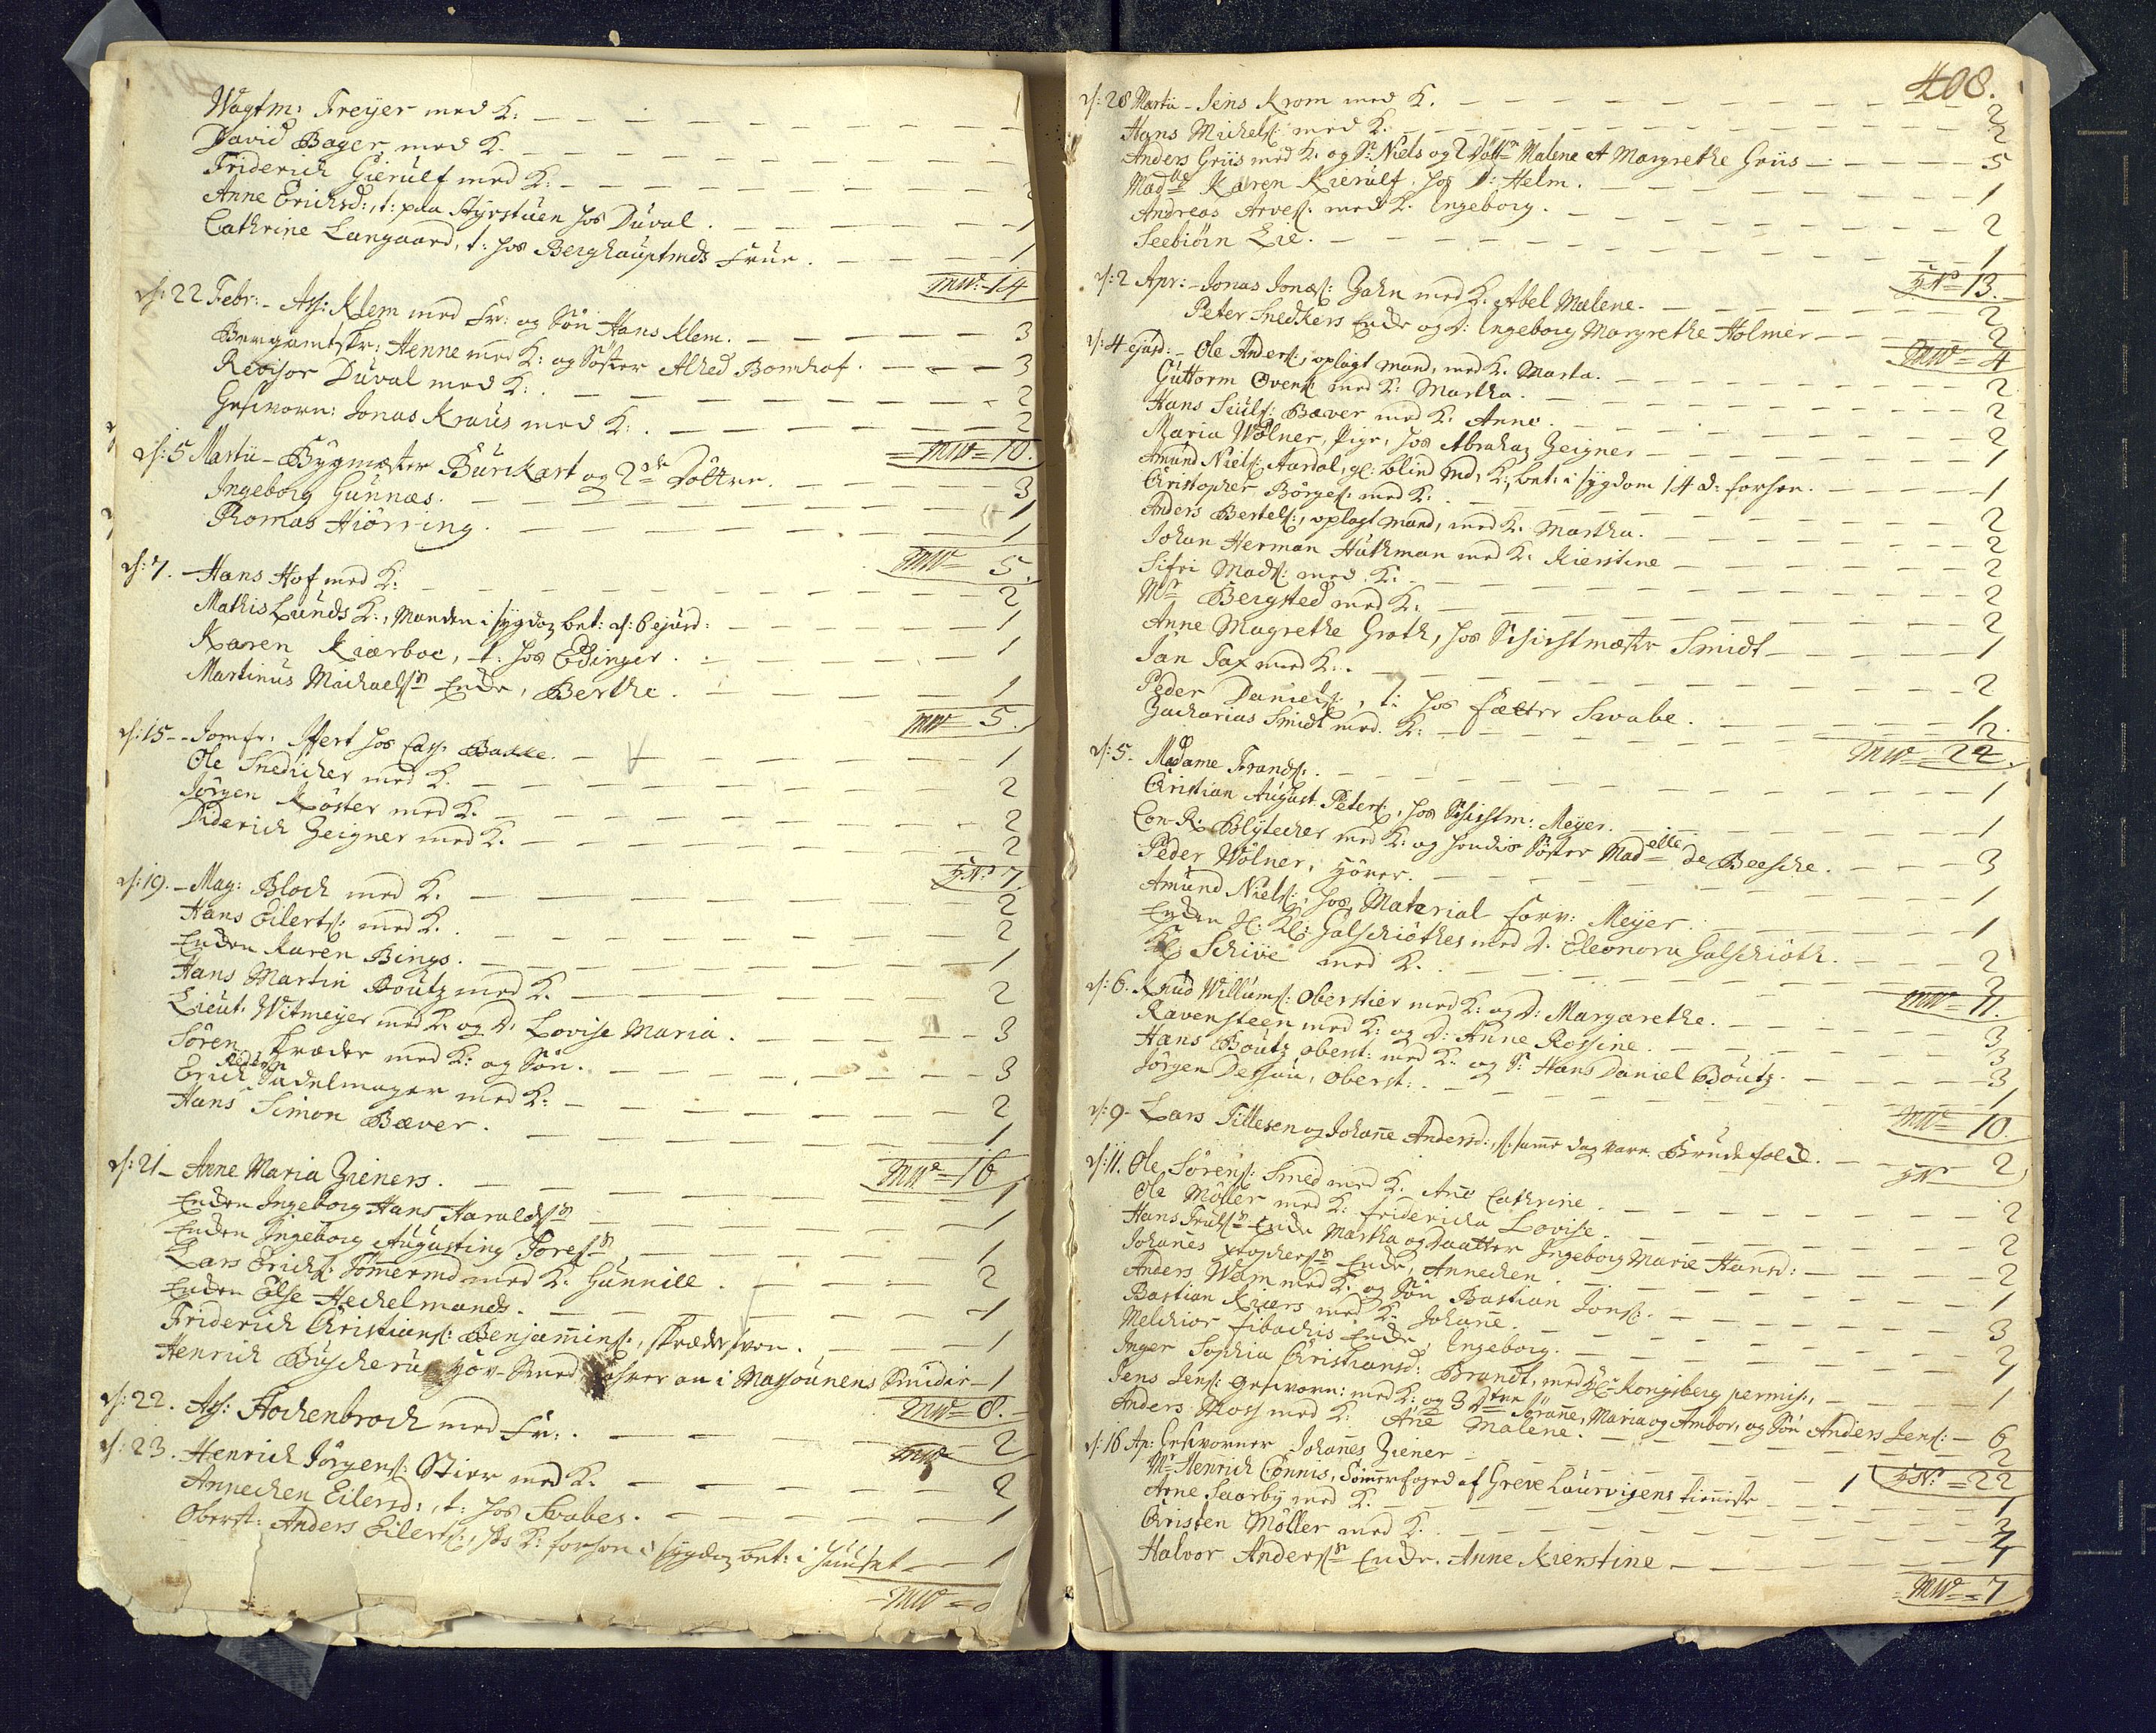 Wagtm: Freyer med K:
David Bager med K.
Friderich Gierulf med K:
Anne Erichsd:, t: paa Styrstuen hos Duval. 1
Cathrine Langaard, t: hos Berghauptmds Frue. 1
MW: 14
d: 22 Febr: - Ass: Klem med Fr: og Søn Hans Klem. 3
Bergamtskr: Henne med K: og Søster Alhed Bomhof. 3
Revisor Duval med K: 2
Gesworn: Jonas Kraus med K: 2
MW = 10.
d: 5 Martii - Bygmester Burckart og 2de Døttre. 3
Ingeborg Gunnæs. 1
Thomas Hiørring. 1
MW 5.
d: 7. Hans Hof med K: 2
Mathis Lunds K:, Manden i sygdom bet: d: 6 ejusd: 1
Karen Kiærboe, t: hos Edinger. 1
Martinus Machaels:n Enke, Berthe. 1
MW = 5.
d: 15 - Jomfr: Ifert hos Cass: Bakke. 1
Ole Snedicher med K. 2
Jørgen Køster med K. 2
Diderich Zeigner med K. 2
7
d: 19. - Mag: Bloch med K. 2
Hans Eilerts: med K. 2
Enken Karen Bings. 1
Hans Martin Boutz med K. 2
Lieut. Witmeyer med K. og D. Lovise Maria. 3
Søren Skræder med K: og Søn. 3
Erich Sadelmager med K: 2
Hans Simon Bæver. 1
MW = 16
d: 21 - Anne Maria Zieners. 1
Enken Ingeborg Hans Haralds:n 1
Enken Ingeborg Augusting Tores:n, 1
Lars Erichs: Tømermd med K: Gunnild. 2
Enken Else Hechelmands. 1
Friderich Christians: Benjamins:, skrædersvon. 1
Henrich i Massouvnens Smidie - 1
MW = 8.
d: 22. Ass: Stochenbroch med Fr:. 2
d: 23. Henrich Jørgens: Stier med K. 2
Annechen Eilersd:, t: hos Svabes. 1
Oberst: Anders Eilerts:, hs K: forhen i sygdom bet: i huuset 1
MW =
408.
d: 28 Martii - Jens Krom med K. 2
Hans Michels: med K. 2
Anders Griis med K. og S: Niels og 2 Døttr Malene et Margrethe Griis 5
Madlle Karen Kierulf, hos D: Helm. 1
Andreas Arves: med K. Ingeborg. 2
Seebiørn Lie. 1
13.
d: 2 Apr: - Jonas Jonæs: Zahn med K. Abel Malene. 2
Peter Snedkers Enke og D: Ingeborg Margrethe Holmer 2
MW = 4
d: 4 ejusd: - Ole Anders:, oplagt mand, med K. Marta. 2
Guttorm Ovens: med K: Martha. 2
Hans Siuls: Bæver med K. Anne. 2
Maria Wølner, Pige, hos Abraham Zeigner 1
Amund Niels: Aardal, gl: blind md, K:, bet: i sygdom 14 d: forhen. 1
Christopher Børges: med K. 2
Anders Bertels:, oplagt mand, med K. Martha. 2
Johan Herman Huthman med K. Kierstine 2
Sifri Mads: med K. 2
Mr Bergsted med K: 2
Anne Magrethe Groth, hos Schichtmæster Smidt 1
Jan Fax med K. 2
Peder Daniels:, t: hos Fætter Svabe. 1
Zacharias Smidt med K: 2.
MW = 22
d: 5. Madame Frands:. 1
Christian August Peters:, hos Schichtm: Meyer. 1
Con-R: Blytecher med K: og hendis Søster Madelle de Beesche. 3
Peder Wølner, Hører. 1
Amund Niels:, hos Material forv: Meyer. 1
Enken Sl: Kl: Galschiøthes med D. Eleonora Galschiøth. 2
Kl: Schive med K. 2
MW = 11.
d: 6. Knud Willums: Oberstier med K: og D: Margarethe. 3
Ravensteen med K: og D: Anne Rossine. 3
Hans Boutz oberst: med K: og S: Hans Daniel Boutz. 3
Jørgen Dessau, Oberst:. 1
MW = 10.
d: 9. Lars Tillesen og Johane Andersd:, samme dag vare Brudefolck. 2
d: 11. Ole Sørens: Smed med K. Ane Cathrine. 2
Ole Møller med K: Fridericha Lovise. 2
Hans Truls:n Enke Martha og Daatter Ingeborg Marie Hansd: 2
Johanes Xtophers:n Enke, Annechen. 1
Anders Wam med K. og Søn Bastian Jons:. 3
Bastian Kiers med K. Johane. 2
Melchior Fibachis Enke, Ingeborg. 1
Inger Sophia Christiansd: Brandt, med Kongsberg permis:, 1
Jens Jens: Gesvorn: med K: og 3 Dttre Sørane, Maria og Ambor, og Søn Anders Jens: 6
Anders Moss med K: Ane Malene. 2
22
d: 16 Ap: Gesvorner Johanes Ziener 1
Mr Henrich Connis, Tømerfoged af Greve Laurvigens tieniste 1
Arne Saarby med K. 2
Christen Møller med K. 2
Halvor Anders:n Enke. Anne Kierstine 1
MW = 7